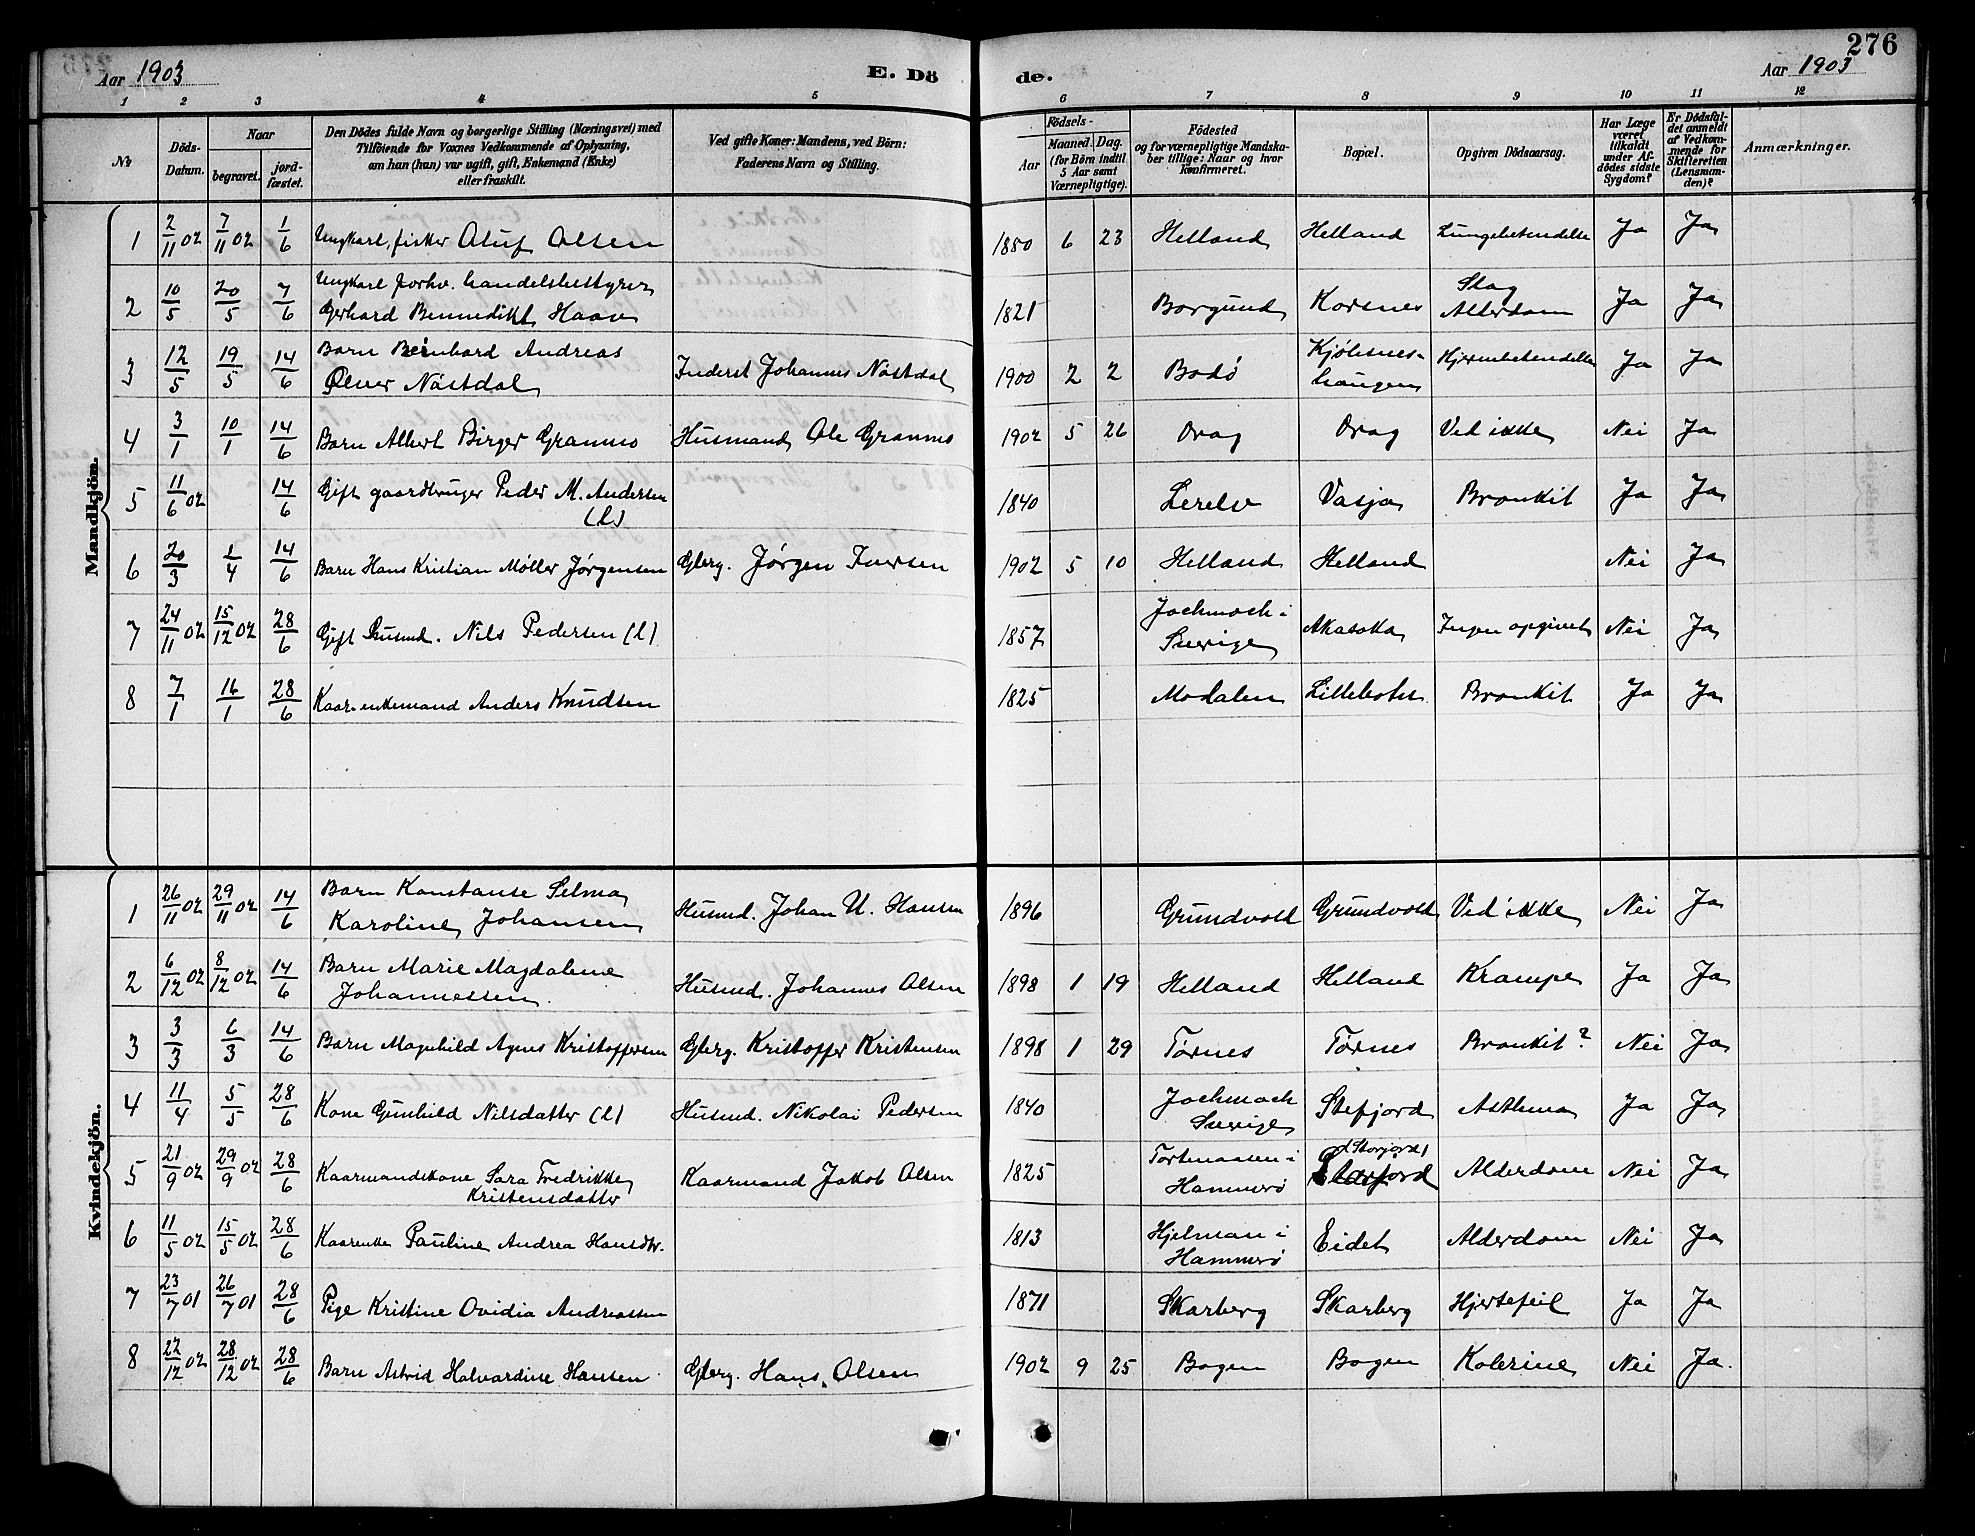 276
Aar 1903
E. Dö
de.
Aar 1903
1 2 3 4 5 6 7 8 9 10 11 12
No
Döds-
Datum.
Naar
begravet.
jord-
fæstet.
Den Dödes fulde Navn og borgerlige Stilling (Næringsvei) med
Tilföiende for Voxnes Vedkommende af Oplysning,
om han (hun) var ugift, gift, Enkemand (Enke)
eller fraskilt.
Ved gifte Koner: Mandens, ved Börn:
Faderens Navn og Stilling.
Födsels-
Aar
Maaned.
Dag.
(for Börn indtil
5 Aar samt
Værnepligtige).
Födested
og for værnepligtige Mandska-
ber tillige: Naar og hvor
konfirmeret.
Bopæl.
Opgiven Dödsaarsag.
Har Læge
været
tilkaldt
under Af-
dödes sidste
Sygdom?
Er Dödsfal-
det anmeldt
af Vedkom-
mende for
Skifteretten
(Lensman-
den)?
Anmærkninger.
Mandkjön.
1 2/11 02 7/11 02 1/6 Ungkarl, fisker Oluf Olsen 1880 6 23 Helland Helland Lungebetendelse Ja Ja
2 10/5 20/5 7/6 Ungkarl forhv. handelsbestyrer
Gerhard Bennedikt Haave 1821 Borgund Korsnes Slag
Alderdom Ja Ja
3 12/5 19/5 14/6 Barn Beinhard Andreas
Ølver Nöstdal Inderst Johannes Nöstdal 1900 2 2 Bodö Kjöbsnes-
haugen Hjernebetendelse Ja Ja
4 3/1 10/1 14/6 Barn Albert Birger Grannes Husmand Ole Grannes 1902 5 26 Drag Drag Ved ikke Nei Ja
5 11/6 02 14/6 Gift gaardbruger Peder M. Andersen
(l) 1840 Lerelv Vasja Bronkit Ja Ja
6 20/3 1/4 14/6 Barn Hans Kristian Møller Jørgensen Gbrg. Jørgen Iversen 1902 5 10 Helland Helland Nei Ja
7 24/11 02 15/12 02 28/6 Gift Husmd. Nils Pedersen (l) 1857 Jochmoch i
Sverige Akasoka Ingen opgivet Nei Ja
8 7/1 16/1 28/6 Kaar-enkemand Anders Knudsen 1825 Modalen Lillebotn Bronkit Ja Ja
Kvindekjön.
1 26/11 02 29/11 02 14/6 Barn Konstanse Selma
Karoline Johansen Husmd. Johan U. Hansen 1896 Grundvold Grundvold Ved ikke Nei Ja
2 6/12 02 8/12 02 14/6 Barn Marie Magdalene
Johannessen. Husmd. Johannes Olsen 1898 1 19 Helland Helland Krampe Ja Ja
3 3/3 6/3 14/6 Barn Magnhild Agnes Kristoffersen Gbrg. Kristoffer Kristensen 1898 1 29 Tørnes Tørnes Bronkit? Nei Ja
4 11/4 5/5 28/6 Kone Gunhild Nilsdatter (l) Husmd. Nikolai Pedersen 1840 Jochmoch
Sverige Stefjord Asthma Ja Ja
5 21/9 02 29/9 02 28/6 Kaarmandskone Sara Fredrikke
Kristensdatter Kaarmand Jakob Olsen 1825 Tortenaasen i
Hammerö (Storjord)
Storfjord Alderdom Nei Ja
6 11/5 02 15/5 02 28/6 Kaarenke Pauline Andrea Hansdtr. 1813 Hjelman i
Hammerö Eidet Alderdom Nei Ja
7 23/7 01 26/7 01 28/6 Pige Kristine Ovidia Andreassen 1871 Skarberg Skarberg Hjertefeil Ja Ja
8 22/12 02 28/12 02 28/6 Barn Astrid Halvardine Hansen Gbrg. Hans Olsen 1902 9 25 Bogen Bogen Kolerine Nei Ja